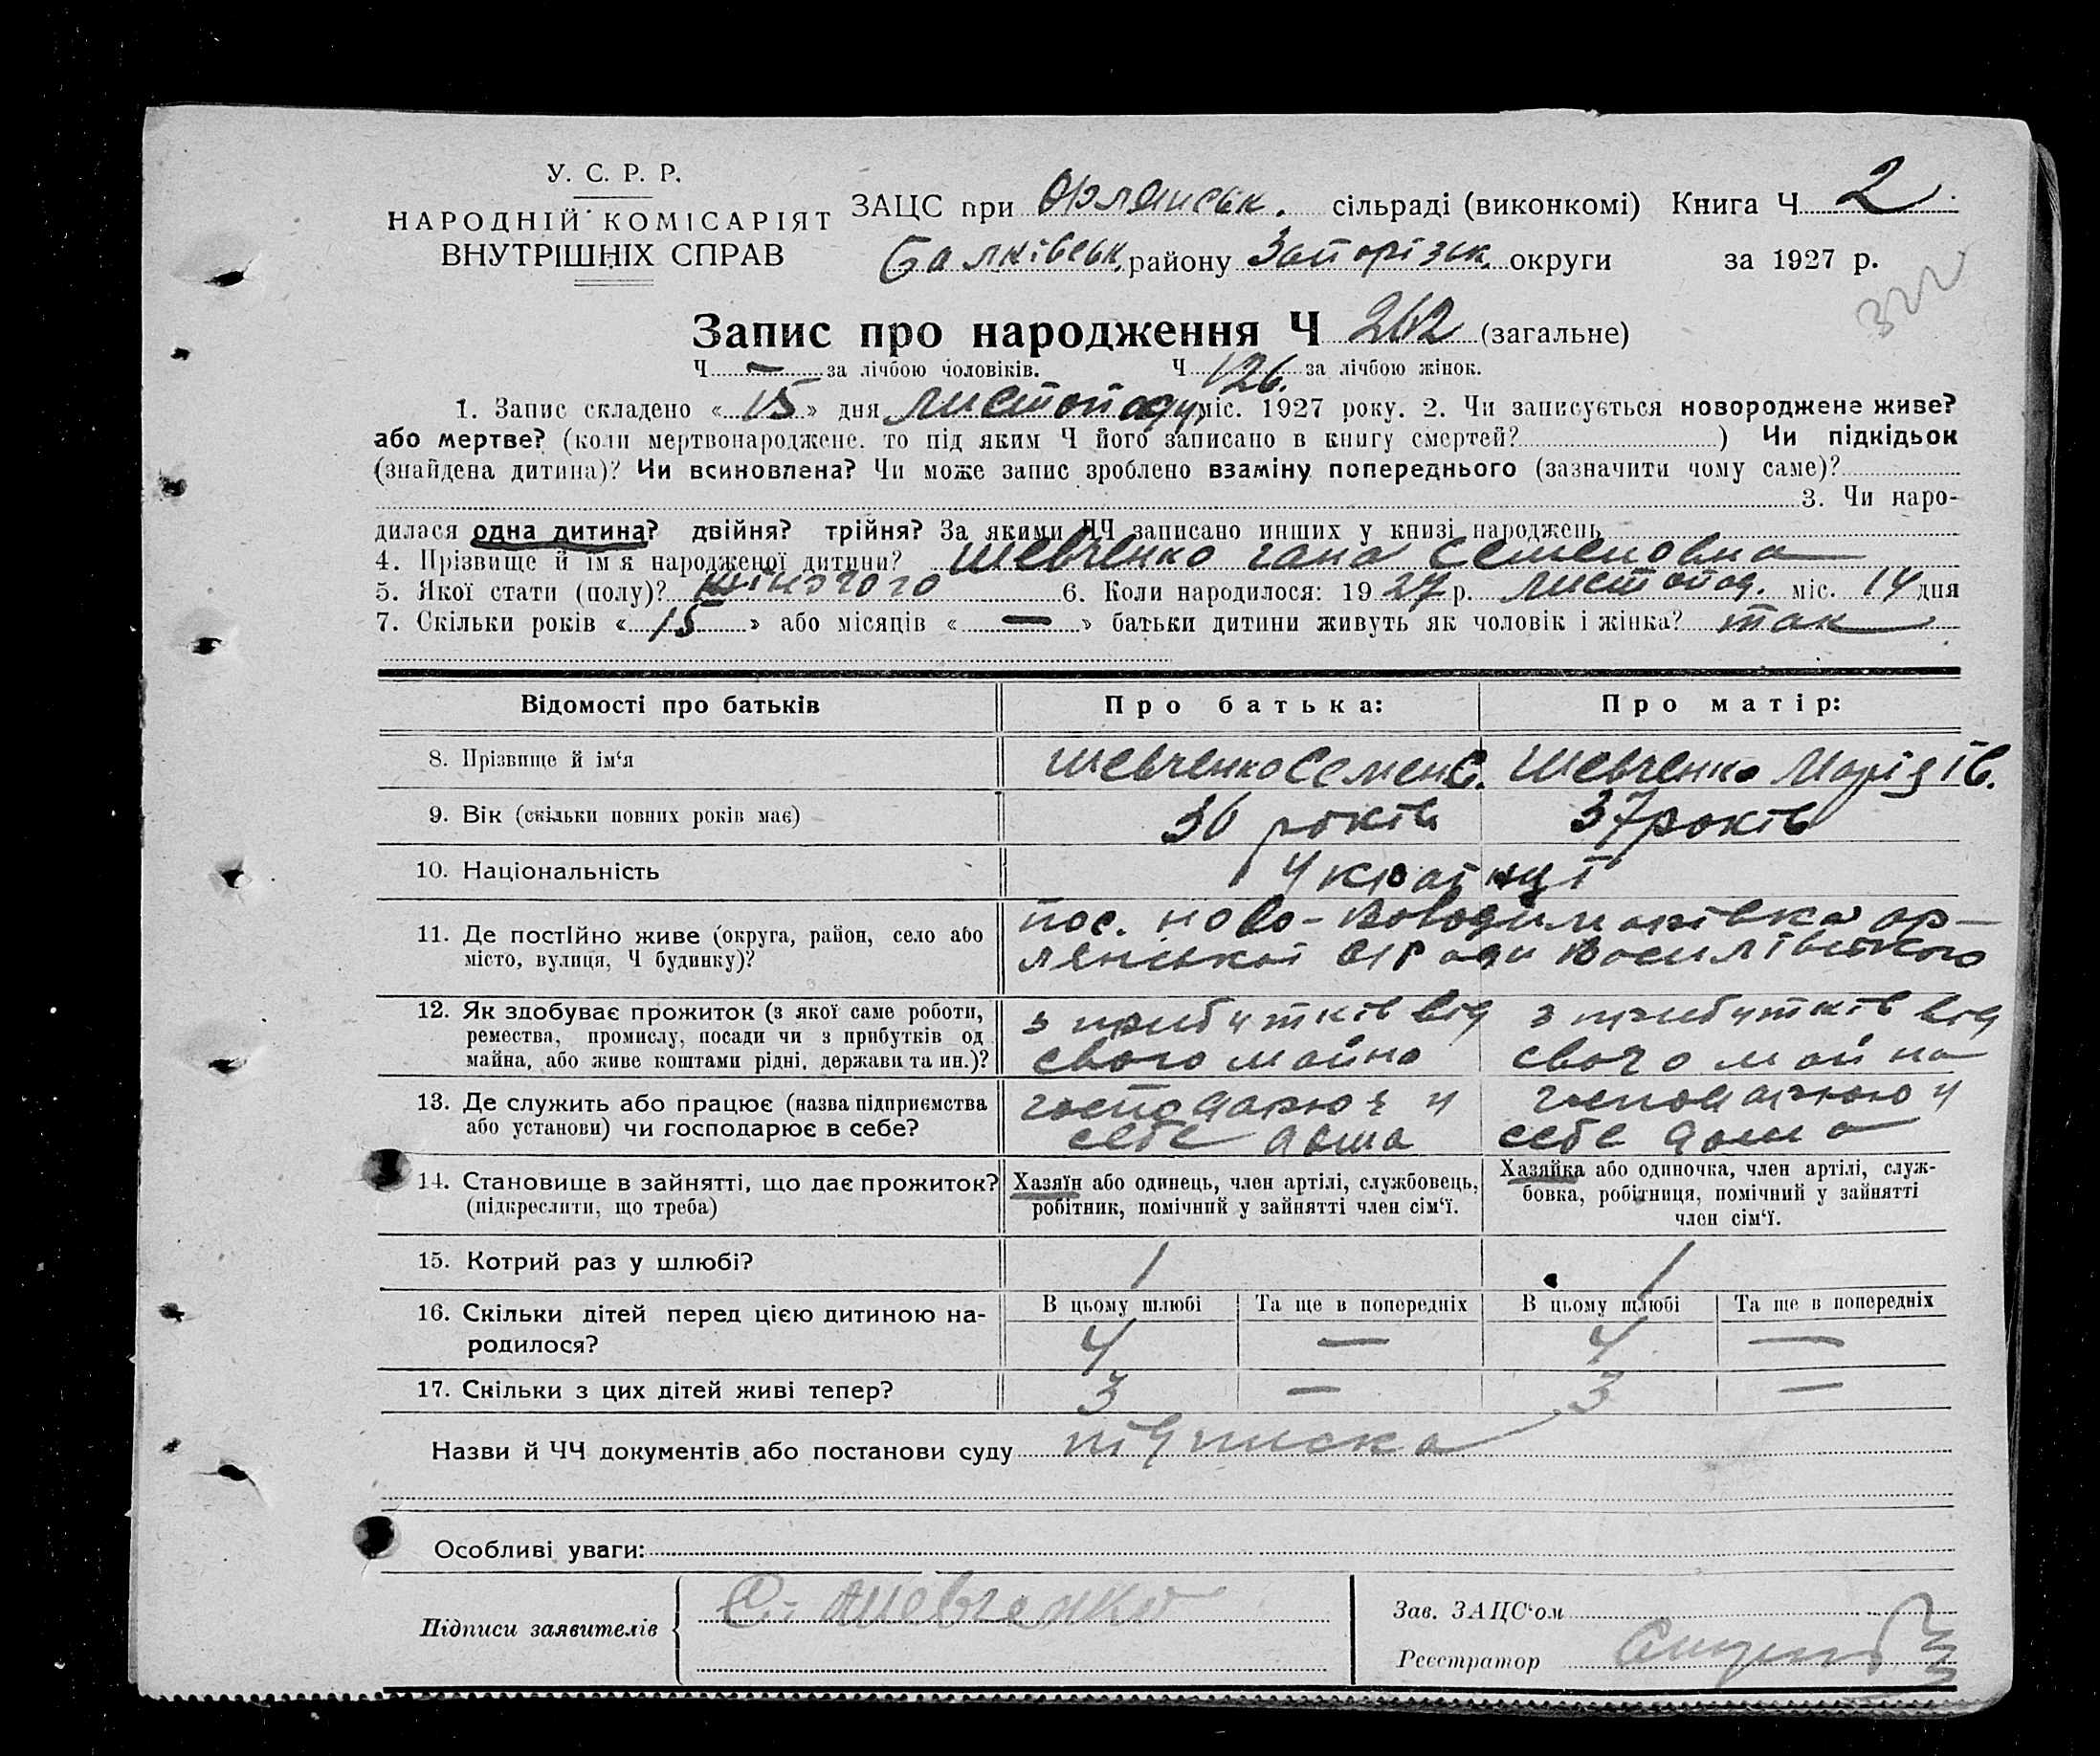 У. С. Р. Р.
НАРОДНІЙ КОМІСАРІЯТ
ВНУТРІШНІХ СПРАВ
ЗАЦС при Орлянськ. сільраді (виконкомі) Книга Ч 2
Балківськ. району Запорізьк. округи за 1927 р.
322
Запис про народження Ч 262 (загальне)
Ч — за лічбою чоловіків. Ч 126. за лічбою жінок.
1. Запис складено « 15 » дня листопаду міс. 1927 року. 2. Чи записується новороджене живе?
або мертве? (коли мертвонароджене. то під яким Ч його записано в книгу смертей? ) Чи підкідьок
(знайдена дитина)? Чи всиновлена? Чи може запис зроблено взаміну попереднього (зазначити чому саме)?
3. Чи наро-
дилася одна дитина? двійня? трійня? За якими ЧЧ записано инших у книзі народжень
4. Прізвище й ім'я народженої дитини? Шевченко Гана Семеновна
5. Якої стати (полу)? жіночого 6. Коли народилося: 1927 р. листопад. міс. 14 дня
7. Скільки років « 15 » або місяців « — » батьки дитини живуть як чоловік і жінка? так
Відомості про батьків Про батька: Про матір:
8. Прізвище й ім‘я Шевченко Семен С. Шевченко Марія Ів.
9. Вік (скільки повних років має) 36 років 37 років
10. Національність українці
11. Де постійно живе (округа, район, село або
місто, вулиця, Ч будинку)?
пос. Ново-Володимирівка Ор-
лянської с/ради Василівського
12. Як здобуває прожиток (з якої саме роботи,
ремества, промислу, посади чи з прибутків од
майна, або живе коштами рідні, держави та ин.)?
з прибутків від
свого майна
з прибутків від
свого майна
13. Де служить або працює (назва підприємства
або установи) чи господарює в себе?
господарює у
себе дома
господарює у
себе дома
14. Становище в зайнятті, що дає прожиток?
(підкреслити, що треба)
Хазяїн або одинець, член артілі, службовець,
робітник, помічний у зайнятті член сім‘ї.
Хазяйка або одиночка, член артілі, служ-
бовка, робітниця, помічний у зайнятті
член сім‘ї.
15. Котрий раз у шлюбі? 1 1
16. Скільки дітей перед цією дитиною на-
родилося?
В цьому шлюбі Та ще в попередніх В цьому шлюбі Та ще в попередніх
4 — 4 —
17. Скільки з цих дітей живі тепер? 3 — 3 —
Назви й ЧЧ документів або постанови суду підписка
Особливі уваги:
Підписи заявителів С. Шевченко
Зав. ЗАЦС‘ом
Реєстратор